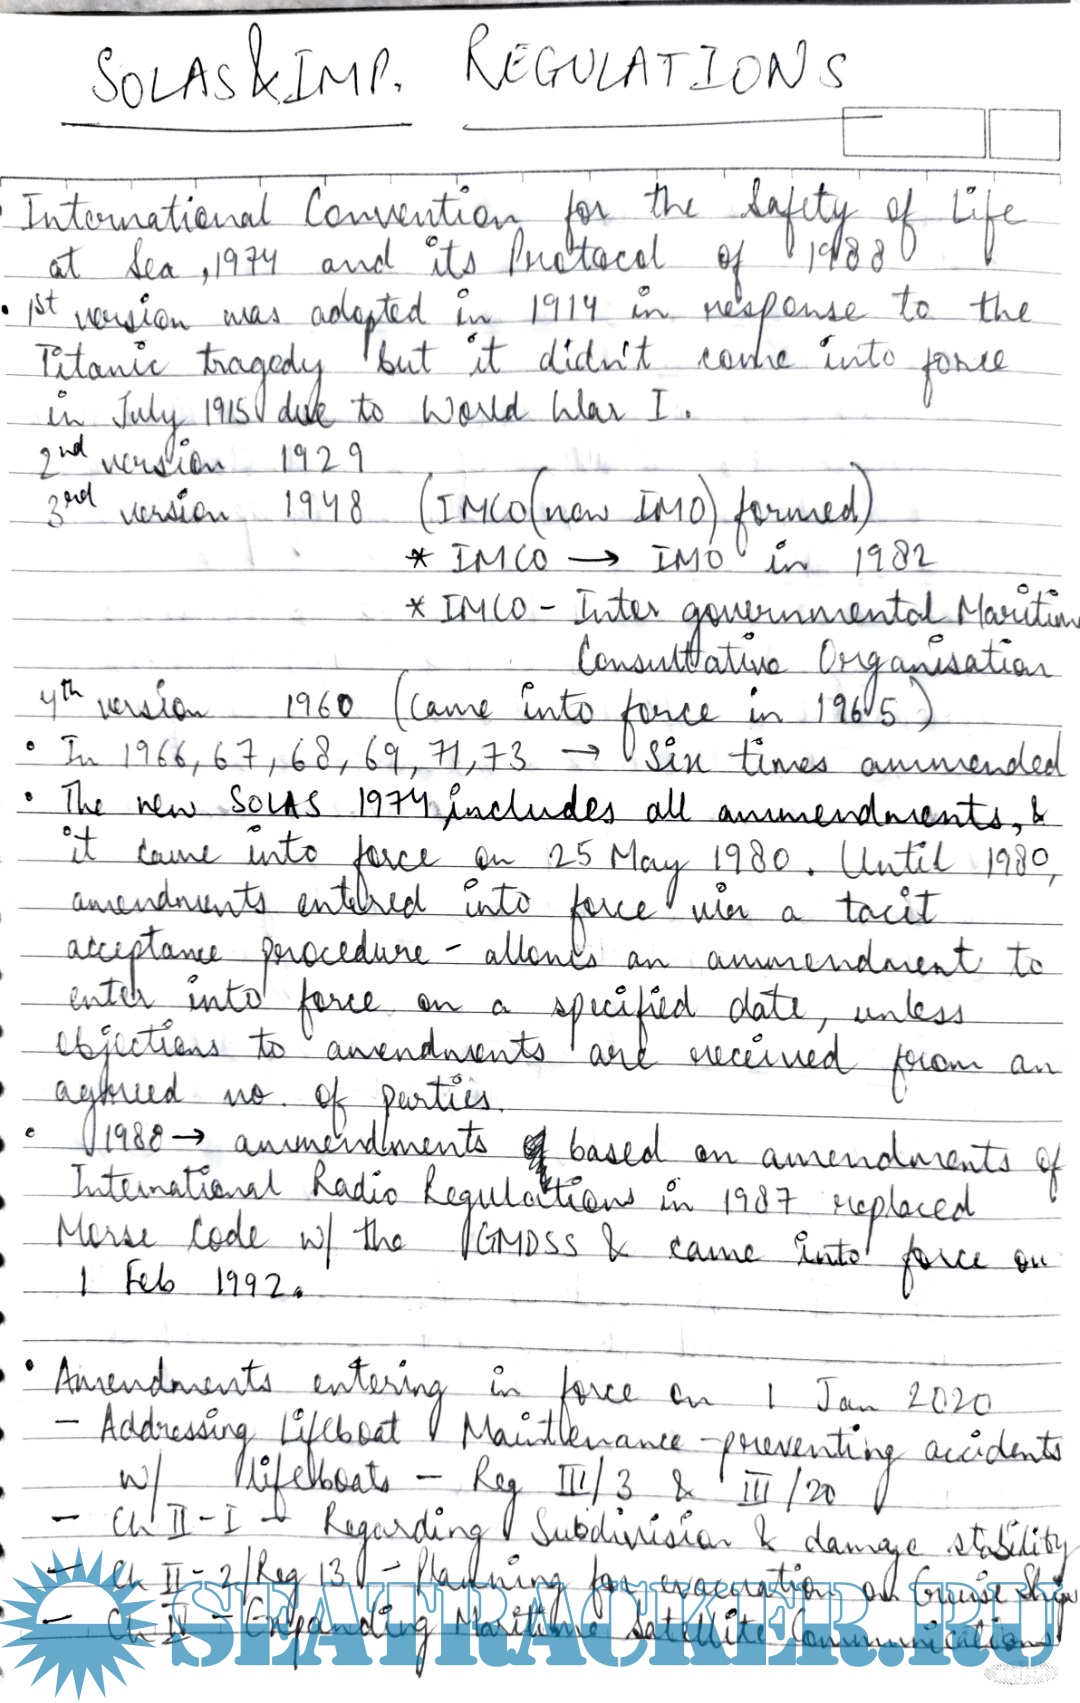 SOLAS & IMP. REGULATIONS
• International Convention for the Safety of Life
at Sea, 1974 and its Protocol of 1988
• 1st version was adopted in 1914 in response to the
Titanic tragedy but it didn't come into force
in July 1915 due to World War I.
2nd version 1929
3rd version 1948 (IMCO (now IMO) formed)
* IMCO → IMO in 1982
* IMCO - Inter governmental Maritim
Consultative Organisation
4th version 1960 (Came into force in 1965)
• In 1966, 67, 68, 69, 71, 73 → Six times ammended
• The new SOLAS 1974, includes all ammendments, &
it came into force on 25 May 1980. Until 1980,
amendments entered into force via a tacit
acceptance procedure - allows an ammendment to
enter into force on a specified date, unless
objections to amendments are received from an
agreed no. of parties.
• 1988 → ammendments based on amendments of
International Radio Regulations in 1987 replaced
Morse Code w/ the GMDSS & came into force on
1 Feb 1992.
• Amendments entering in force on 1 Jan 2020
- Addressing Lifeboat Maintenance - preventing accidents
w/ lifeboats - Reg III/3 & III/20
- Ch II-I - Regarding Subdivision & damage stability
- Ch II-2/Reg 13 - Planning for evacuation on Cruise Ships
- Ch IV - Expanding Maritime Satellite Communications
SEATRACKER.RU